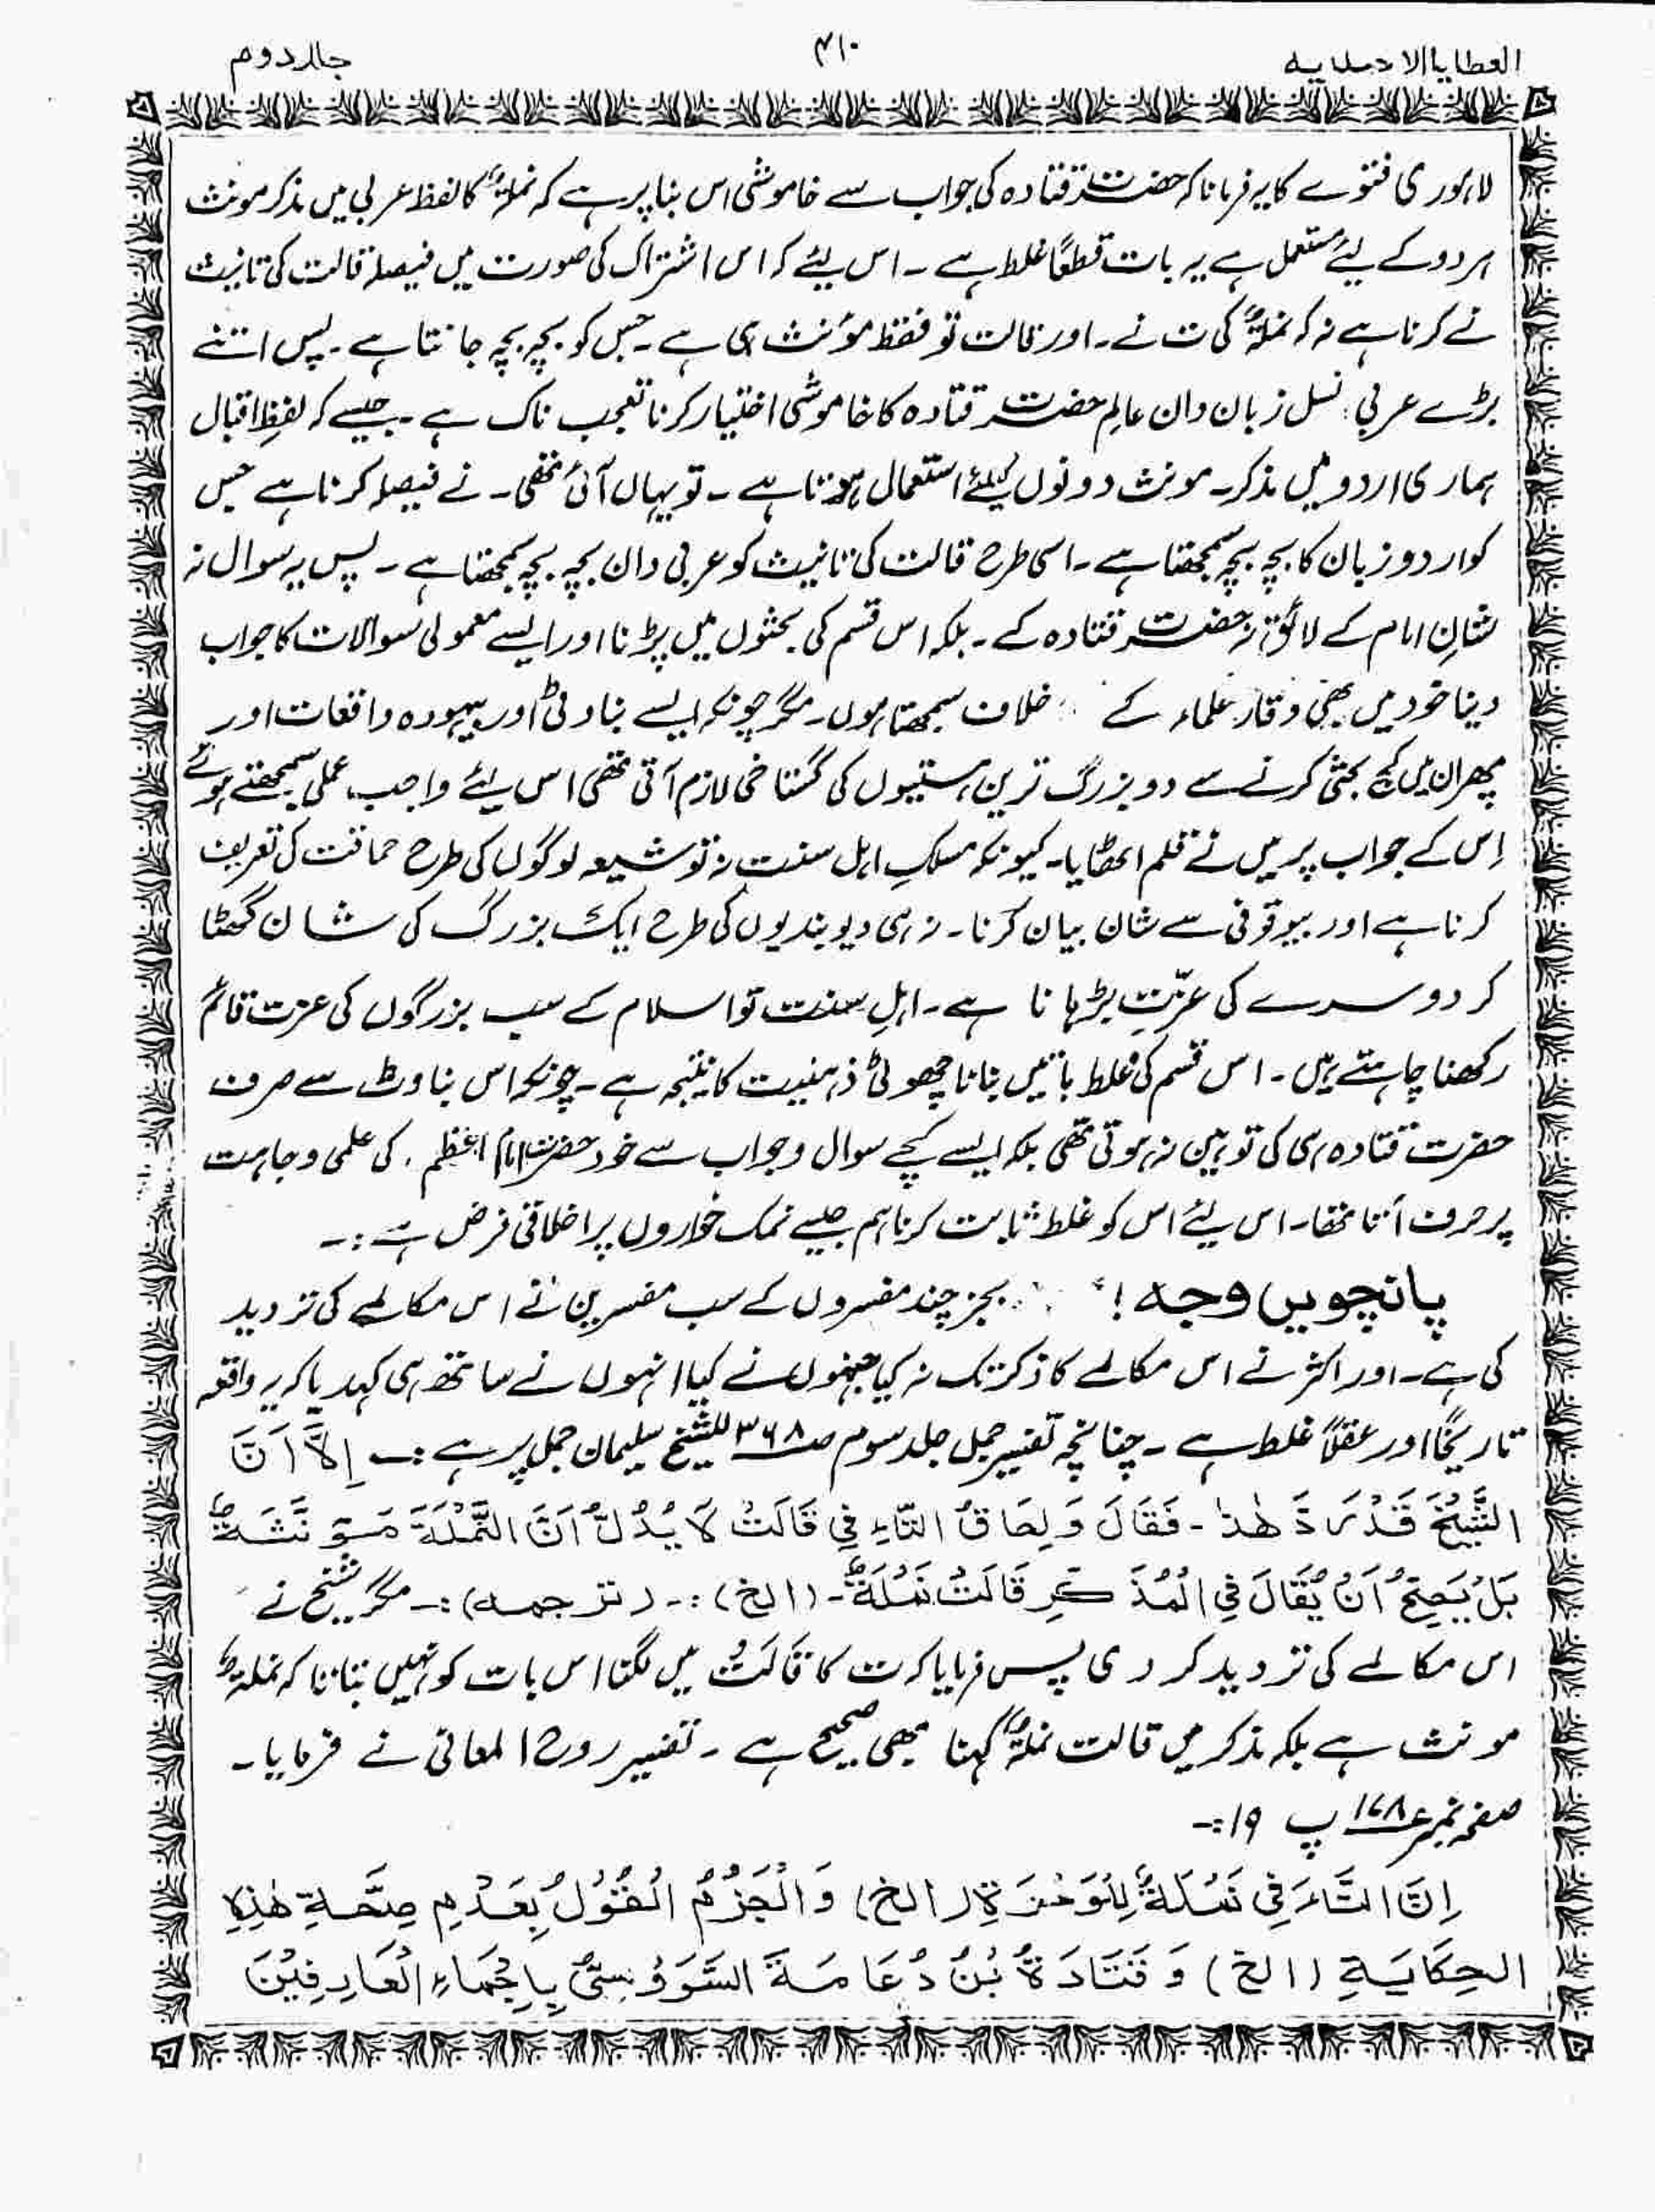 العطایا الاحمدیہ ۴۱۰ جلد دوم
لاہوری فتوے کا یہ فرمانا کہ حضرت قتادہ کی جواب سے خاموشی اس بنا پر ہے کہ نملۃٌ کا لفظ عربی میں مذکر مونث
ہر دو کے لیئے مستعمل ہے یہ بات قطعًا غلط ہے ۔ اس لیئے کہ اس اشتراک کی صورت میں فیصلہ قالت کی تانیث
نے کرنا ہے نہ کہ نملۃٌ کی ت نے ۔ اور قالت تو فقط مؤنث ہی ہے ۔ جس کو بچہ بچہ جانتا ہے ۔ پس اتنے
بڑے عربی نسل زبان دان عالم حضرت قتادہ کا خاموشی اختیار کرنا تعجب ناک ہے ۔ جیسے کہ لفظِ اقبال
ہماری اردو میں مذکر ۔ مونث دونوں کیلئے استعمال ہوتا ہے ۔ تو یہاں آئی تھی ۔ نے فیصلہ کرنا ہے جس
کو اردو زبان کا بچہ بچہ سمجھتا ہے ۔ اسی طرح قالت کی تانیث کو عربی دان بچہ بچہ سمجھتا ہے ۔ پس یہ سوال نہ
شانِ امام کے لائق نہ حضرت قتادہ کے ۔ بلکہ اس قسم کی بحثوں میں پڑنا اور ایسے معمولی سوالات کا جواب
دینا خود میں بھی وقار علماء کے خلاف سمجھتا ہوں ۔ مگر چونکہ ایسے بناوٹی اور بیہودہ واقعات اور
پھر ان میں کج بحثی کرنے سے دو بزرگ ترین ہستیوں کی گستاخی لازم آتی تھی اس لئے واجب عملی سمجھتے ہوئے
اِس کے جواب پر میں نے قلم اٹھایا ۔ کیونکہ مسلکِ اہل سنت نہ تو شیعہ لوگوں کی طرح حماقت کی تعریف
کرنا ہے اور بیوقوفی سے شان بیان کرنا ۔ نہ ہی دیوبندیوں کی طرح ایک بزرگ کی شان گھٹا
کر دوسرے کی عزّت بڑہانا ہے ۔ اہلِ سنت تو اسلام کے سب بزرگوں کی عزت قائم
رکھنا چاہتے ہیں ۔ اس قسم کی غلط باتیں بنانا چھوٹی ذہنیت کا نتیجہ ہے ۔ چونکہ اس بناوٹ سے صرف
حضرت قتادہ ہی کی توہین نہ ہوتی تھی بلکہ ایسے کچے سوال و جواب سے خود حضرت امام اعظم کی علمی وجاہت
پر حرف آتا تھا ۔ اس لیئے اس کو غلط ثابت کرنا ہم جیسے نمک خواروں پر اخلاقی فرض ہے :۔
پانچویں وجہ ! بجز چند مفسروں کے سب مفسرین نے اس مکالمے کی تردید
کی ہے ۔ اور اکثر نے اس مکالمے کا ذکر تک نہ کیا جنہوں نے کیا انہوں نے ساتھ ہی کہدیا کہ یہ واقعہ
تاریخًا اور عقلًا غلط ہے ۔ چنانچہ تفسیر جمل جلد سوم صـ ۳۶۸ للشیخ سلیمان جمل پر ہے :۔ اِلَّا اَنَّ
الشَّیْخَ قَدْ رَدَّ ھٰذَا ۔ فَقَالَ وَلِحَاقُ التَّاءِ فِی قَالَتْ لَا یَدُلُّ اَنَّ النَّمْلَۃَ مَؤَنَّثَۃٌ
بَلْ یَصِحُّ اَنْ یُّقَالَ فِی الْمُذَکَّرِ قَالَتْ نَمْلَۃٌ ۔ (الخ) :۔ (ترجمہ) :۔ مگر شیخ نے
اس مکالمے کی تردید کر دی پس فرمایا کہ ت کا قَالَتْ میں لگنا اس بات کو نہیں بتاتا کہ نملۃٌ
مونث ہے بلکہ مذکر میں قالت نملۃٌ کہنا بھی صحیح ہے ۔ تفسیر روح المعانی نے فرمایا ۔
صفحہ نمبر ۱۷۸ پ ۱۹ :۔
اِنَّ التَّاءَ فِی نَمْلَۃٌ لِلْوَحْدَۃِ (الخ) وَ الْجَزْمُ الْقُوْلُ بِعَدْمِ صِحَّۃِ ھٰذِہِ
الحِکَایَۃِ (الخ) وَ قَتَادَۃُ بْنُ دُعَامَۃَ السَّدُوْسِیُّ بِاِجْمَاءِ الْعَارِفِیْنَ